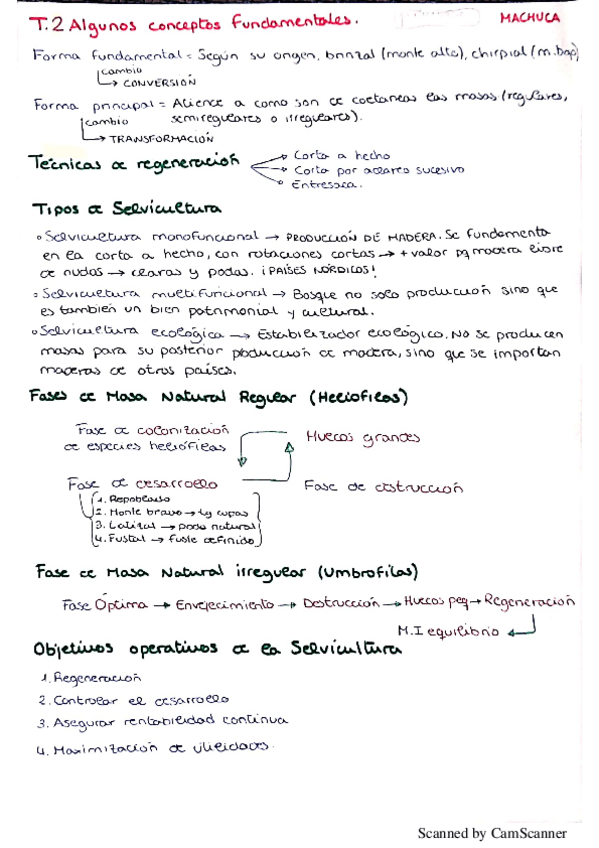 T.2 Algunos conceptos fundamentales. MACHUCA
Forma fundamental = Según su origen, brinzal (monte alto), chirpial (m.bajo)
cambio
→ CONVERSIÓN
Forma principal = Atiende a como son de coetaneas las masas (regulares,
semiregulares o irregulares).
cambio
→ TRANSFORMACIÓN
Técnicas de regeneración → Corta a hecho
→ Corta por aclareo sucesivo
→ Entresaca.
Tipos de Selvicultura
• Selvicultura monofuncional → PRODUCCIÓN DE MADERA. Se fundamenta
en la corta a hecho, con rotaciones cortas → + valor pq madera libre
de nudos → claras y podas. ¡PAÍSES NÓRDICOS!
• Selvicultura multifuncional → Bosque no solo producción sino que
es también un bien patrimonial y cultural.
• Selvicultura ecológica → Estabilizador ecológico. No se producen
masas para su posterior producción de madera, sino que se importan
maderas de otros países.
Fases de Masa Natural Regular (Heliófilas)
Fase de colonización
de especies heliófilas
Huecos grandes
Fase de desarrollo
Fase de destrucción
1. Repoblado
2. Monte bravo → tg copas
3. Latizal → poda natural
4. Fustal → fuste definido
Fase de Masa Natural irregular (Umbrofilas)
Fase Óptima → Envejecimiento → Destrucción → Huecos peq → Regeneración
M.I equilibrio
Objetivos operativos de la Selvicultura
1. Regeneración
2. Controlar el desarrollo
3. Asegurar rentabilidad continua
4. Maximización de utilidades.
Scanned by CamScanner